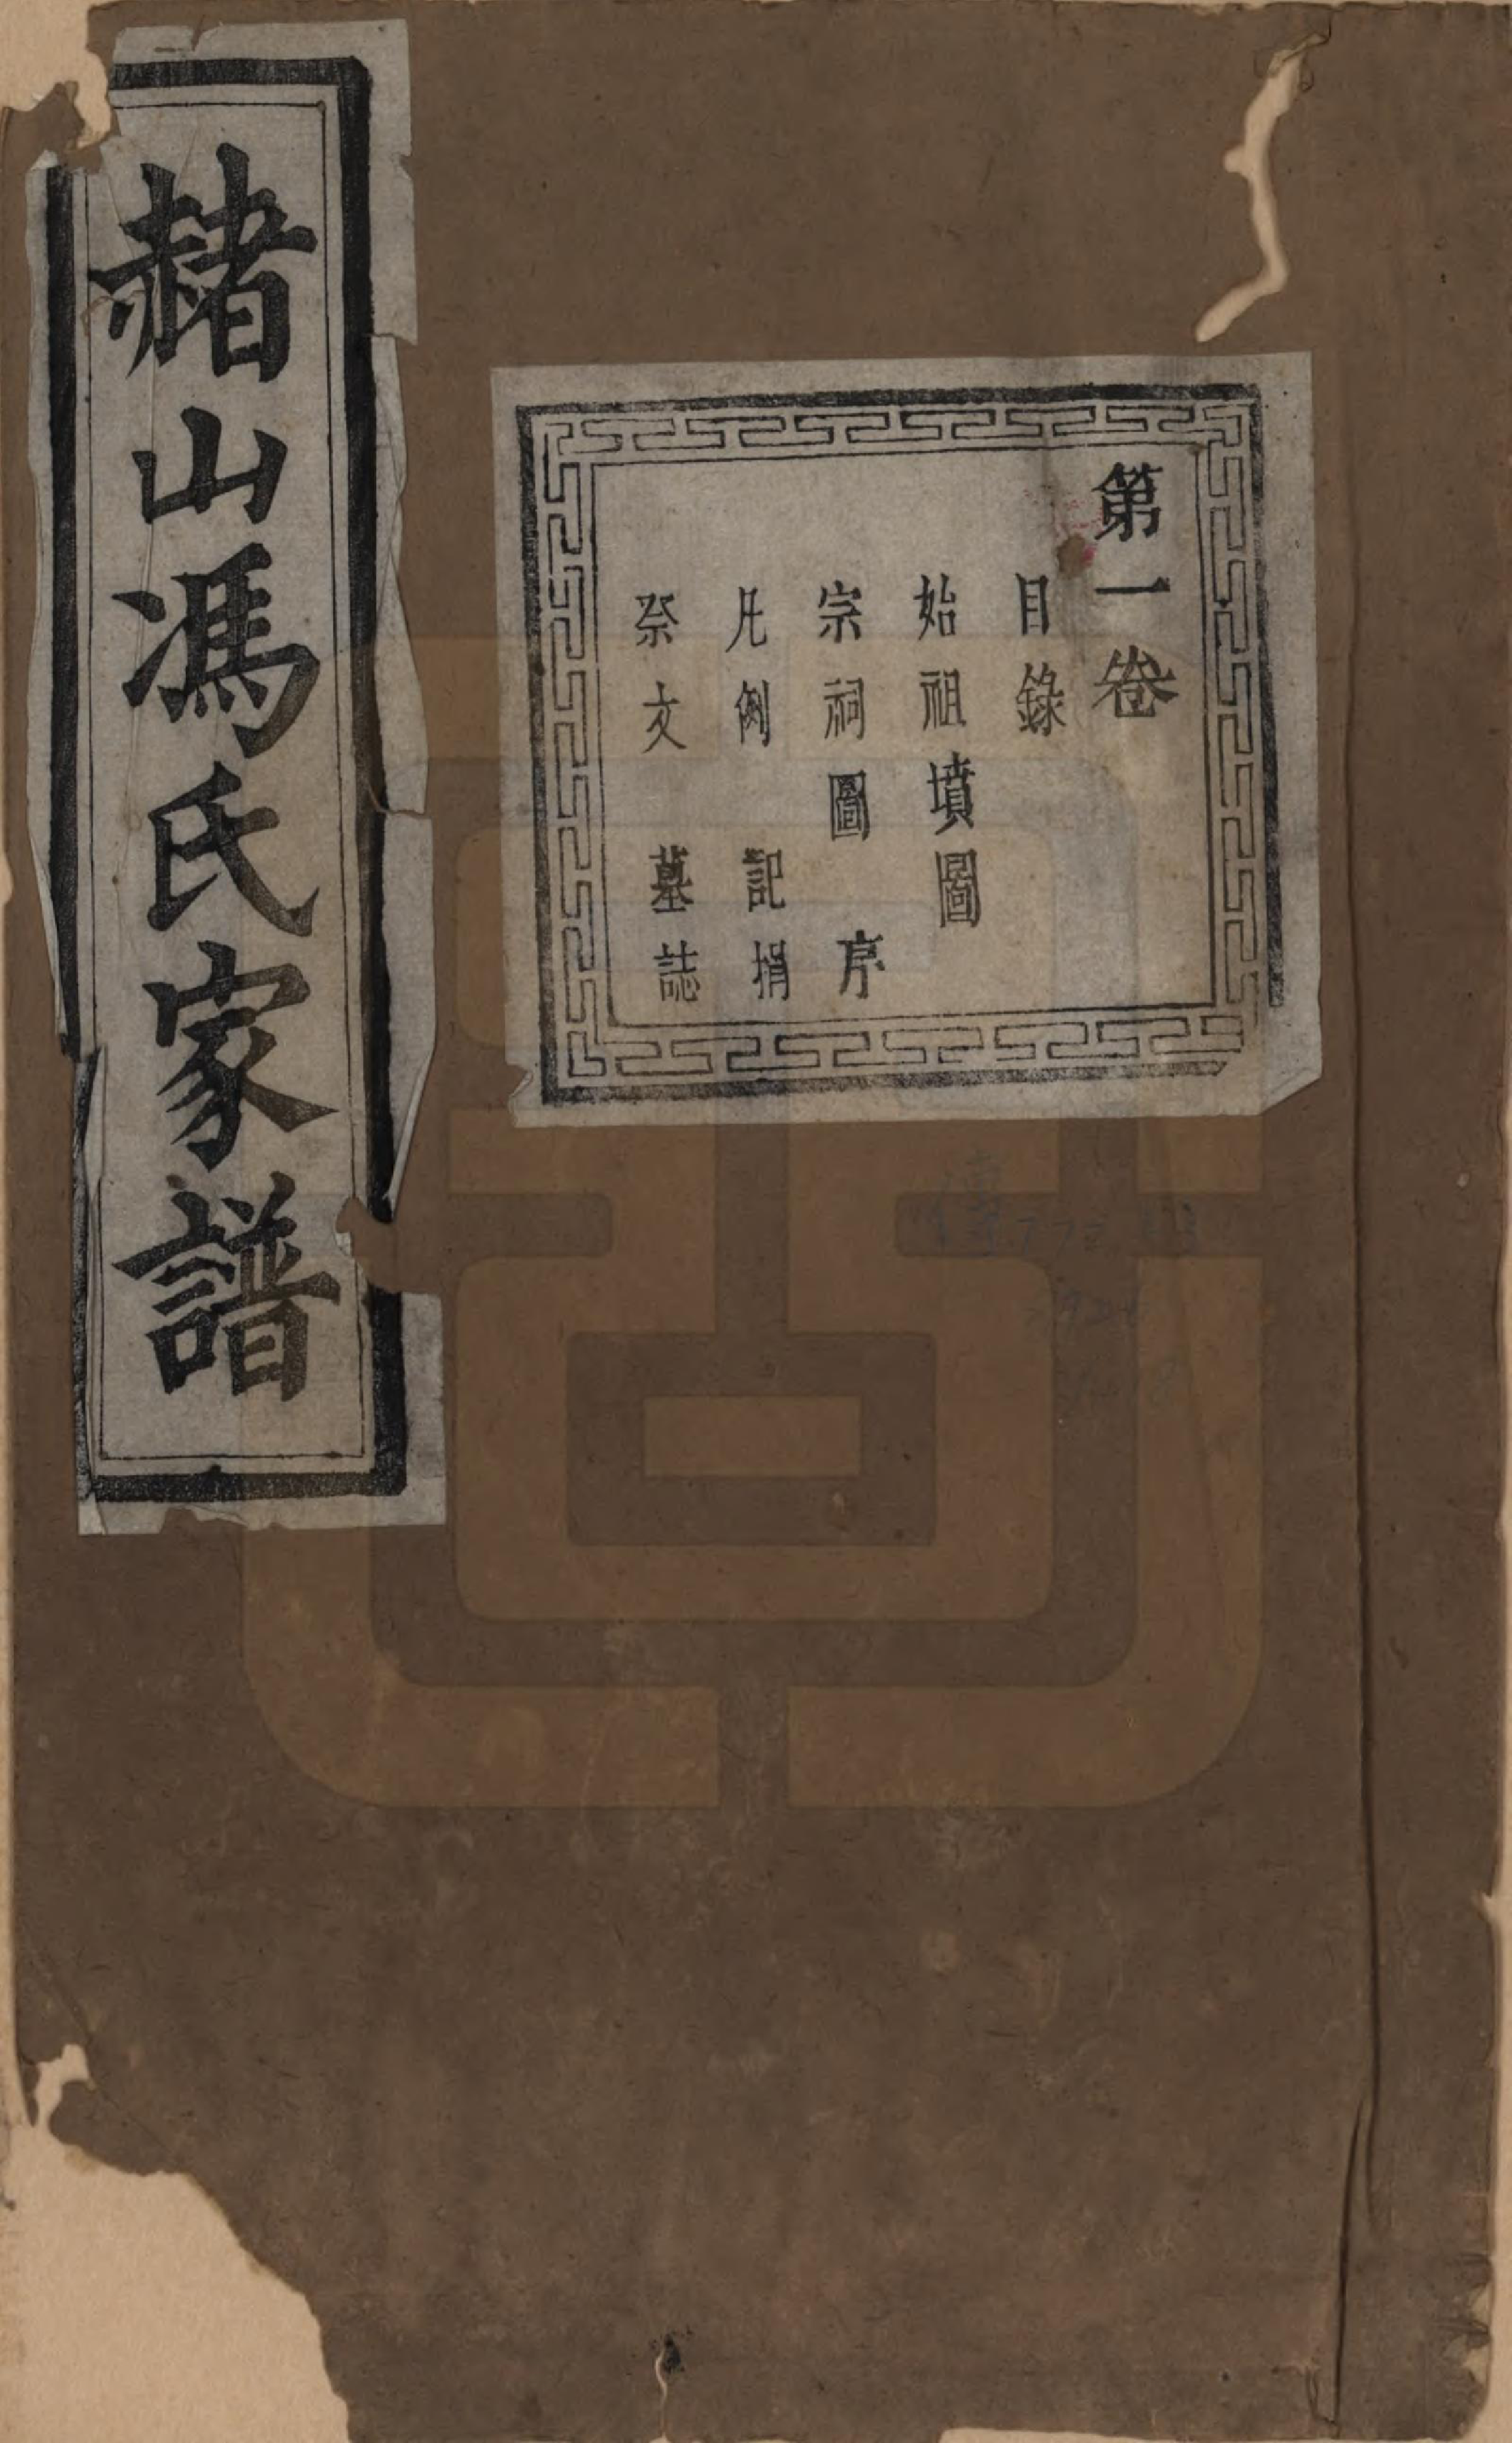 赭山馮氏家譜
第一卷
目錄
始祖墳圖
宗祠圖 序
凡例 記捐
祭文 墓誌